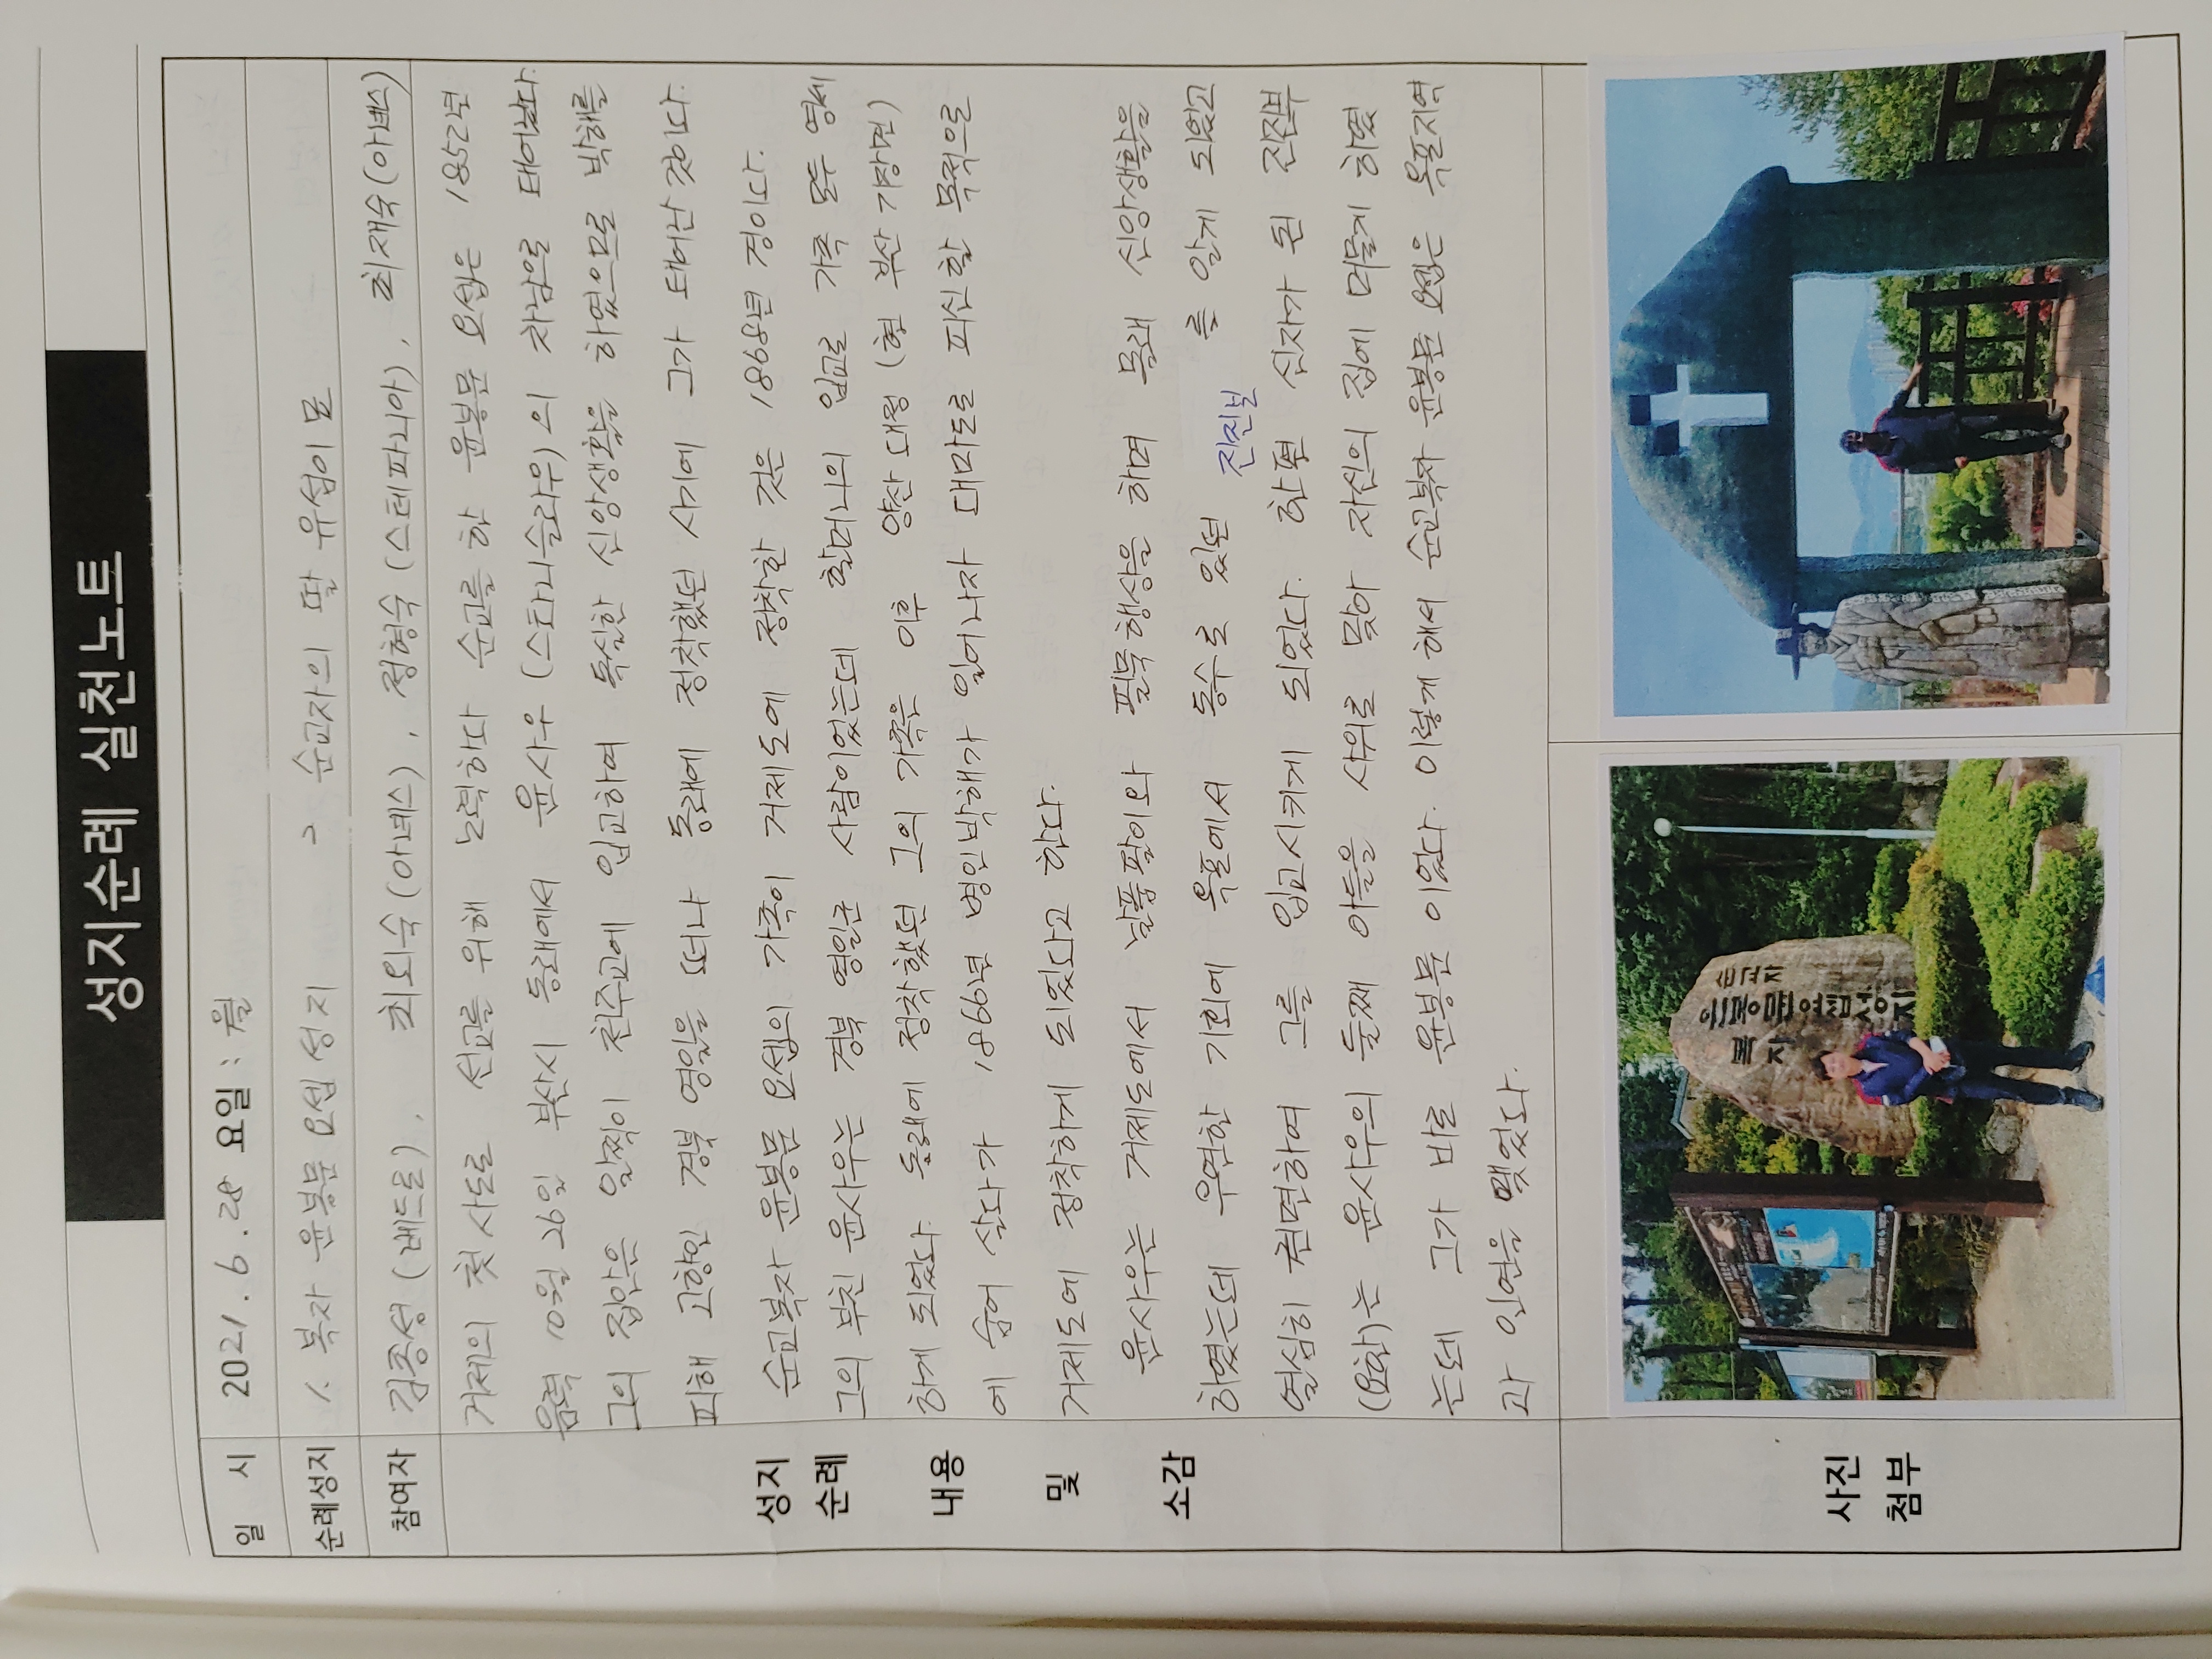 성지순례 실천노트
일 시 2021. 6. 28 요일 : 월
순례성지 1. 복자 윤봉문 요셉 성지 2 순교자의 딸 유섬이 묘
참여자 김종성 (베드로), 최외숙 (아녜스), 정형숙 (스테파니아), 최재숙 (아녜스)
거제의 첫 사도로 선교를 위해 노력하다 순교를 한 윤봉문 요셉은 1852년
음력 10월 26일 부산시 동래에서 윤사우 (스타니슬라우)의 차남으로 태어났다.
그의 집안은 일찍이 천주교에 입교하여 독실한 신앙생활을 하였으므로 박해를
피해 고향인 경북 영일을 떠나 동래에 정착했던 시기에 그가 태어난 것이다.
성지 순교복자 윤봉문 요셉의 가족이 거제도에 정착한 것은 1868년 경이다.
순례 그의 부친 윤사우는 경북 영일군 사람이었는데 할머니의 입교로 가족 모두 영세
내용 하게 되었다. 동래에 정착했던 그의 가족은 이후 양산 대청 (현 부산 기장면)
에 숨어 살다가 1866년 병인박해가 일어나자 대마도로 피신할 목적으로
및 거제도에 정착하게 되었다고 한다.
윤사우는 거제도에서 날품팔이와 필묵행상을 하며 몰래 신앙생활을
소감 하였는데 우연한 기회에 옥포에서 동수로 있던 진진부 를 알게 되었고
열심히 권면하여 그를 입교시키게 되었다. 한편 신자가 된 진진부
(요한)는 윤사우의 둘째 아들을 사위로 맞아 자신의 집에 머물게 하였
는데 그가 바로 윤봉문 이었다. 이렇게 해서 순교복자 윤봉문 요셉은 옥포지역
과 인연을 맺었다.
사진
첨부
순교자
윤봉문요셉성지
복자